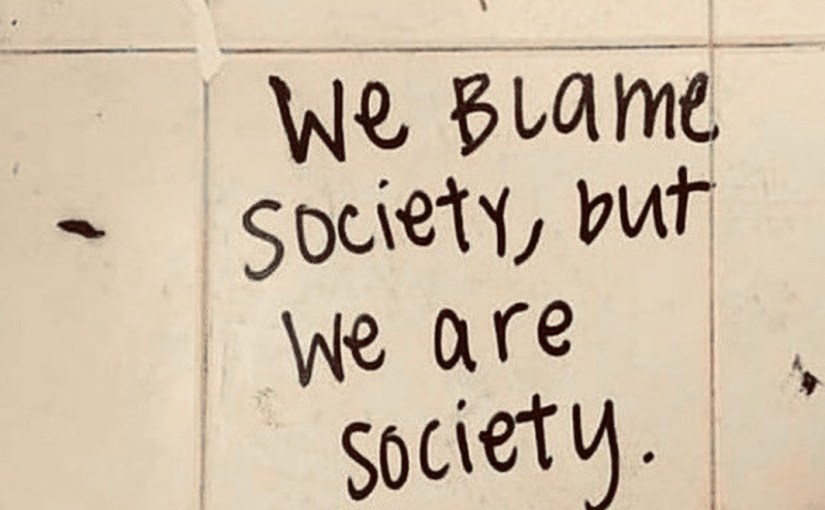 We Blame
Society, but
We are
Society.